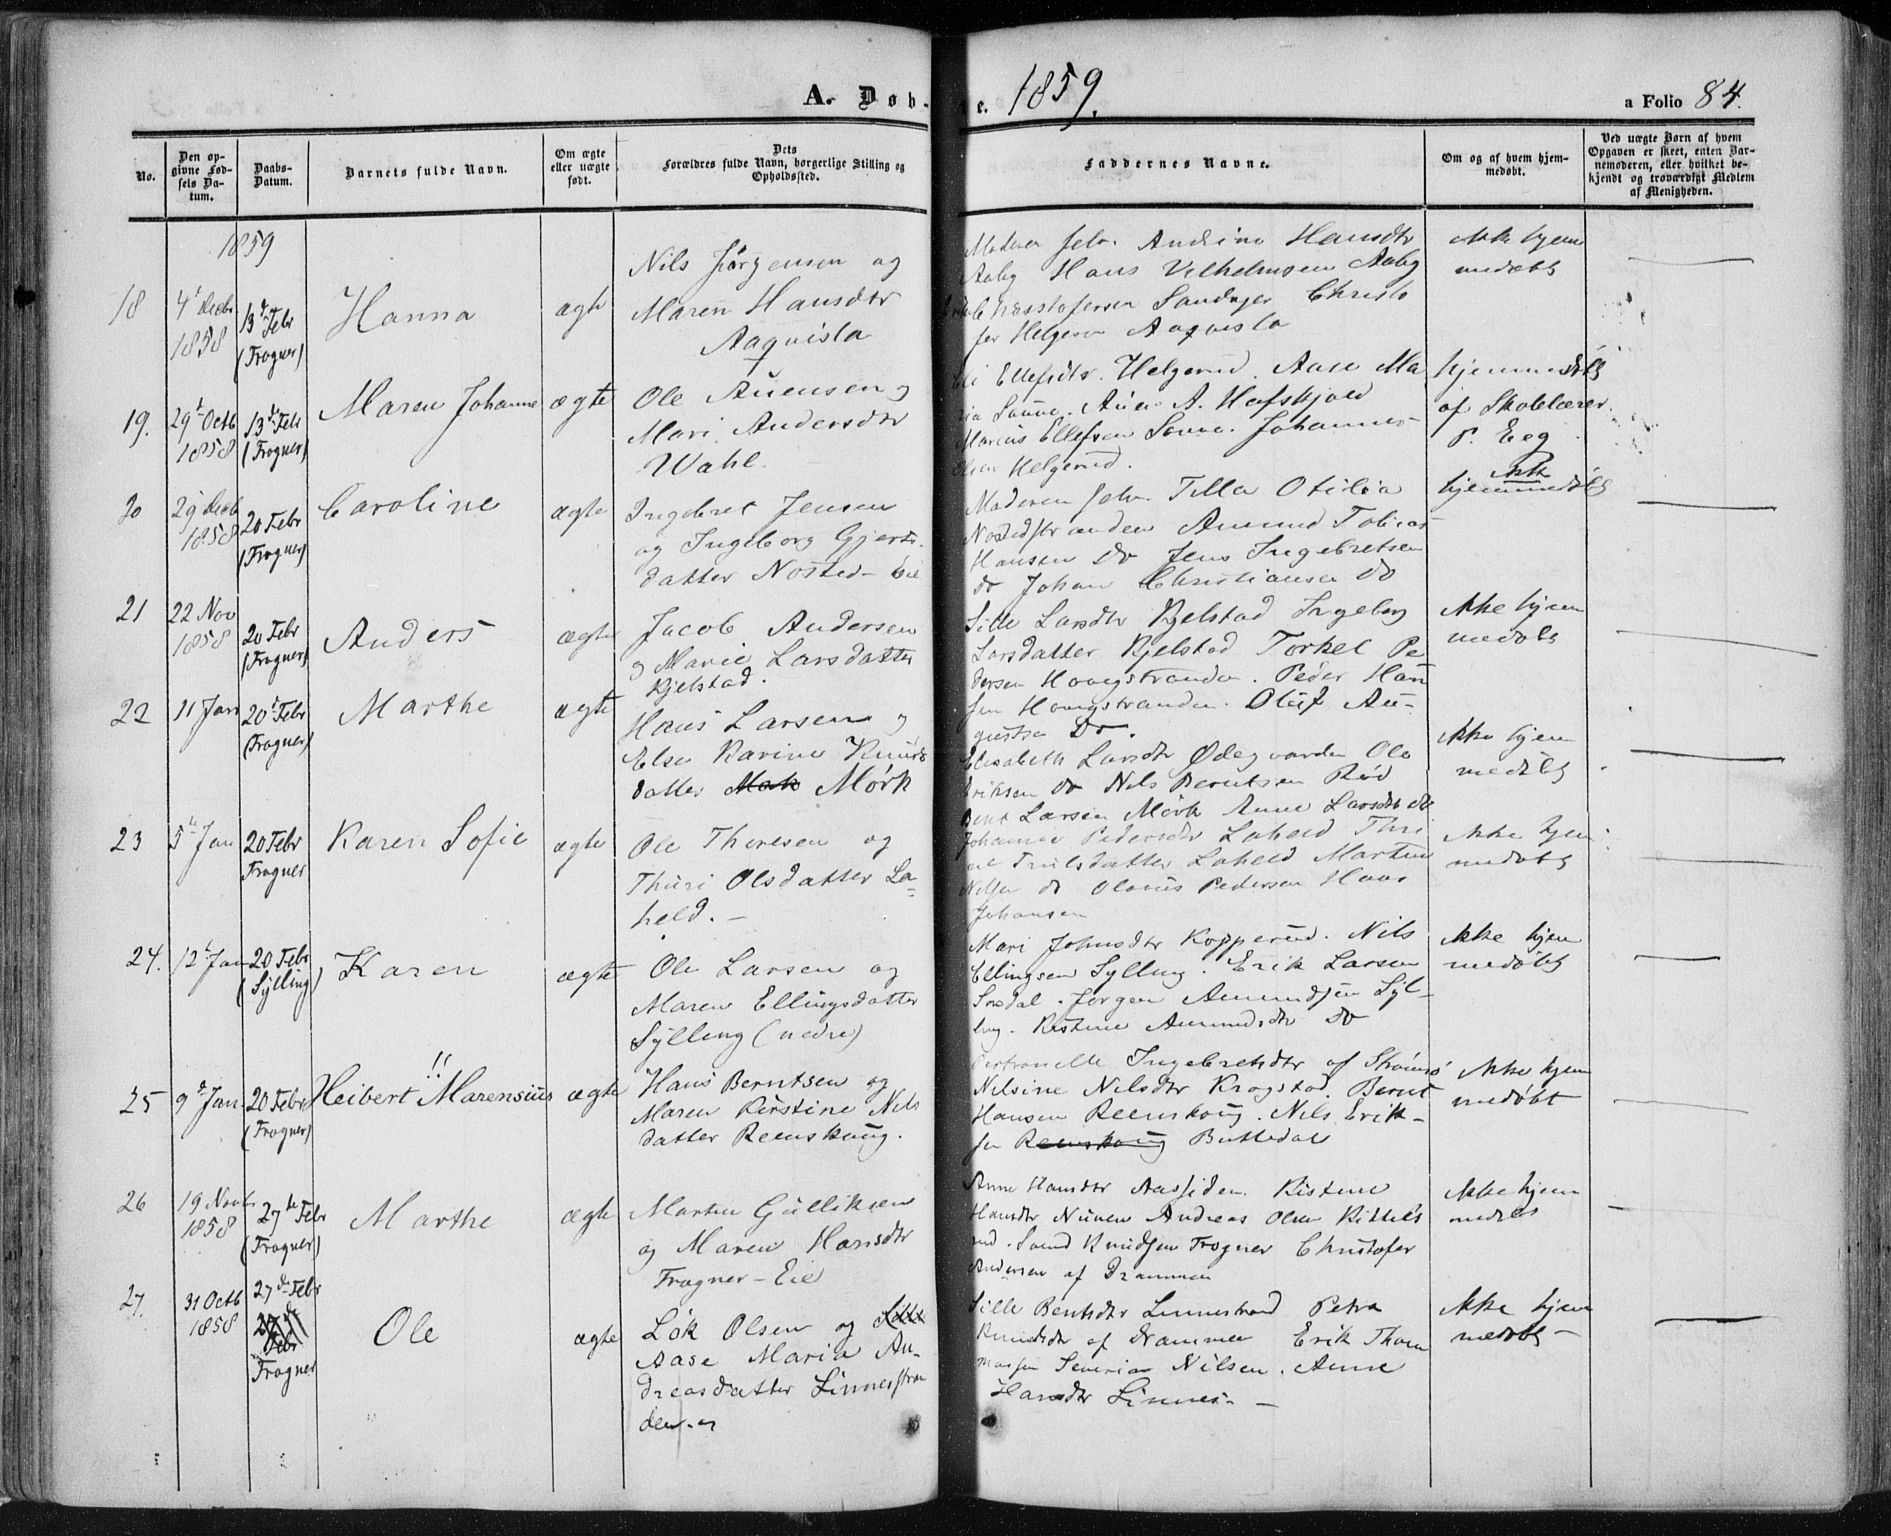 A. Døbte. 1859. a Folio 84.
No.
Den opgivne Fødsels Datum.
Daabs-Datum.
Barnets fulde Navn.
Om ægte eller uægte født.
Dets Forældres fulde Navn, borgerlige Stilling og Opholdssted.
Faddernes Navne.
Om og af hvem hjemmedøbt.
Ved uægte Børn af hvem Opgaven er skeet, enten Barnemoderen, eller hvilket bekjendt og troværdigt Medlem af Menigheden.
1859
18
4d Decbr 1858
13d Febr (Frogner)
Hanna
ægte
Nils Jørgensen og
Maren Hansdtr
Aaqvisla
Moderen selv. Andrine Hansdtr
Aaby Hans Vilhelmsen Aaby
Christofersen Sandager Christo
fer Helgesen Aaqvisla
ikke hjem
medøbt
19.
29d Octb 1858
13de Febr (Frogner)
Maren Johanne
ægte
Ole Auensen og
Mari Andersdtr
Wahl.
Ellefsdtr. Helgerud. Aase Ma
ria Sønne. Auen A. Hafskjold
Marius Ellefsen Sønne. Johannes
Olsen Helgerud.
hjemmedøbt
af Skolelærer
P. Eeg
20
29 Decb 1858
20 Febr (Frogner)
Caroline
ægte
Ingebret Jensen
og Ingeborg Gjerts-
datter Nøsted-Eie
Moderen selv. Tilla Otilia
Nøstedstranden Amund Tobias
Hansen do Jens Ingebretsen
do Johan Christiansen do
ikke
hjemmedøbt
21
22 Nov 1858
20 Febr (Frogner)
Anders
ægte
Jacob Andersen
og Marie Larsdatter
Kjelstad.
Sille Larsdtr Kjelstad Ingeborg
Larsdatter Kjelstad Torkel Pe
dersen Hovgstranden. Peder Han
sen Hovgstranden. Oluf Au-
gustsen do.
ikke hjem
medøbt
22
11 Jan
20d Febr (Frogner)
Marthe
ægte
Hans Larsen og
Else Karine Knuds
datter Mørk
Elisabeth Larsdtr Ødegaarden Ole
Eriksen do Nils Berntsen Rød
Bernt Larsen Mørk Anne Larsdtr do
ikke hjem
medøbt
23
5te Jan
20 Febr Frogner
Karen Sofie
ægte
Ole Theresen og
Thuri Olsdatter La-
held.-
Johanne Pedersdtr Laheld Thri
ne Trulsdatter Laheld Martin
Nilsen do Olavus Pedersen Hans
Johansen
ikke hjem
medøbt
24.
12t Jan
20 Febr (Sylling)
Karen
ægte
Ole Larsen og
Maren Ellingsdatter
Sylling (nedre)
Mari Johnsdtr Kopperud. Nils
Ellingsen Sylling. Erik Larsen
Sørsdal. Jørgen Amundsen Syl-
ling. Kistine Amundsdtr do
ikke hjem
medøbt
25
9d Jan
20 Febr (Frogner)
Heibert !! Marensius
ægte
Hans Berntsen og
Maren Kirstine Nils
datter Reenskoug.
Pertronelle Ingebretsdtr af Strømsø
Nilsine Nilsdtr Krogstad. Bernt
Hansen Reenskoug. Nils Erik-
sen Reenskoug Buttedal
ikke hjem
medøbt
26
19 Novbr 1858
27de Febr (Frogner)
Marthe
ægte
Martin Gulliksen
og Maren Hansdtr
Frogner-Eie
Anne Hansdtr Aassiden. Kistine
Hansdtr Nuven Andreas Olsen Kittels
rud. Svend Knudsen Frogner Christofer
Andersen af Drammen
ikke hjem
medøbt
27.
31 Octb 1858
27de Febr
Frogner
Ole
ægte
Løk Olsen og
Aase Maria An-
dreasdatter Linnesstran
den.
Sille Berntsdtr Linnestrand Petra
Knudsdtr af Drammen Erik Thom
massen Severin Nilsen. Anne
Hansdtr Linnes-
ikke hjem
medøbt